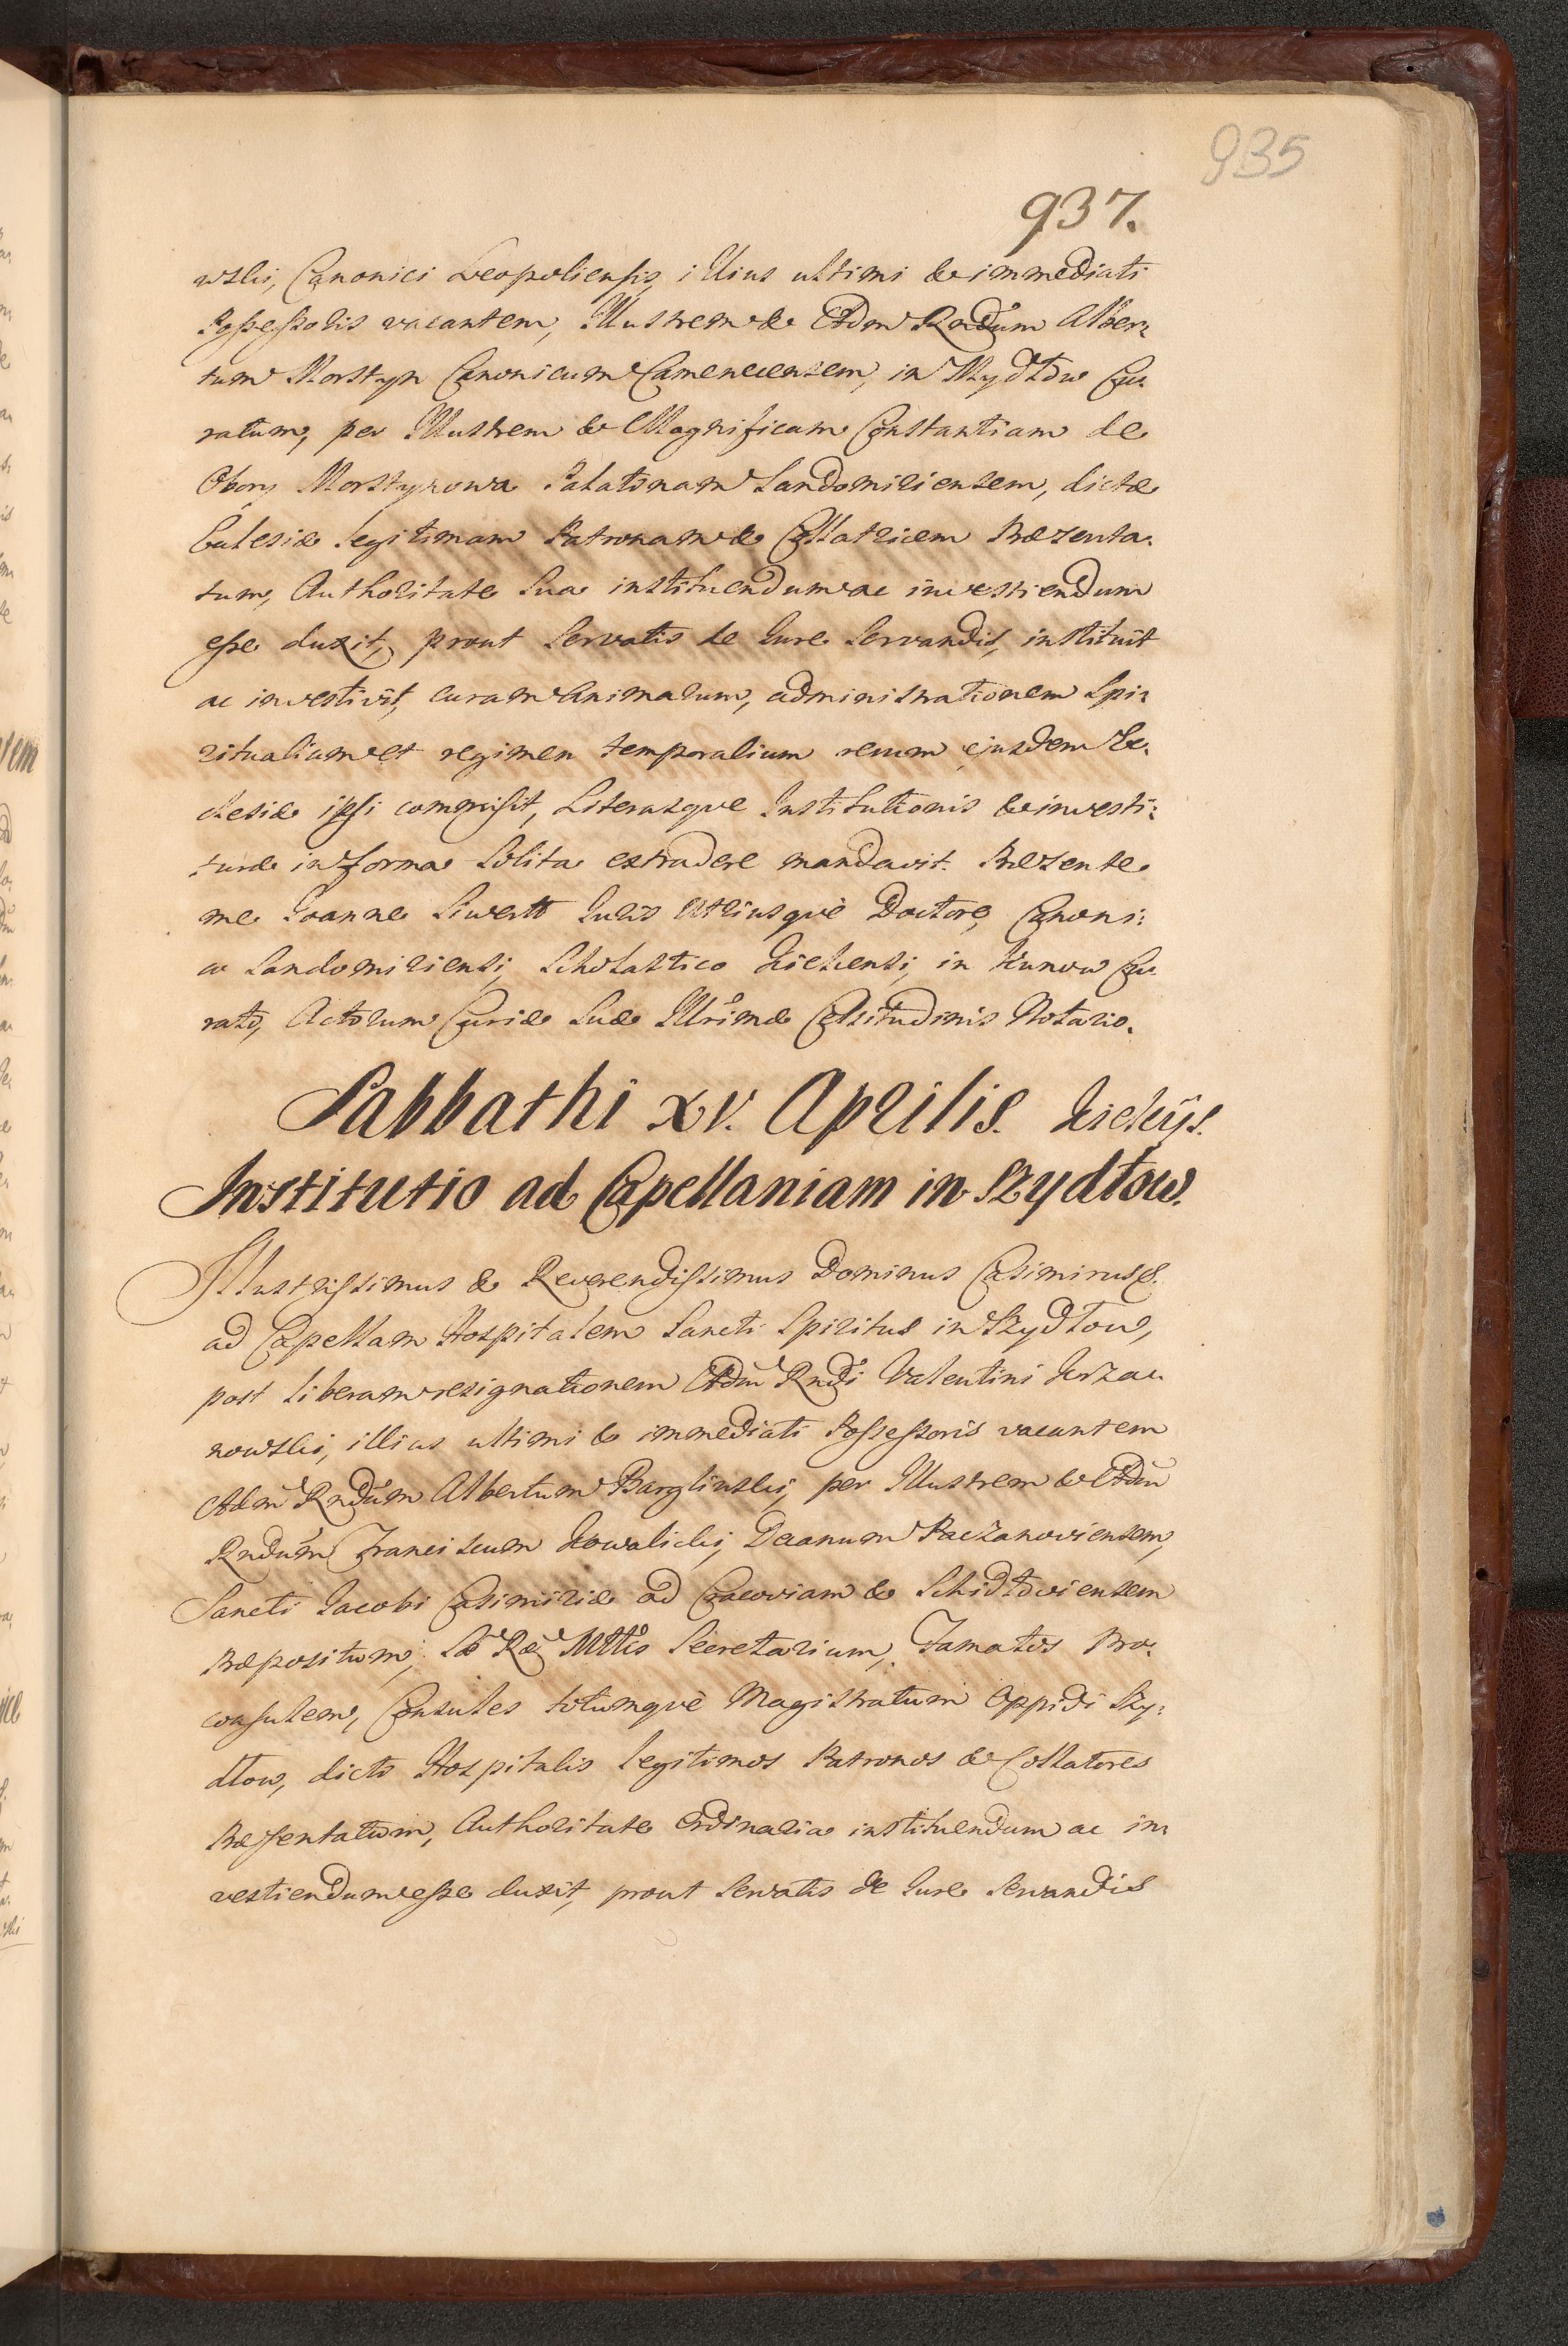 935
937.
wski, Canonici Leopoliensis, illius ultimi & immediati
Possessoris vacantem, Illustrem & Adm Rndum Alber:
tum Morstyn Canonicum Camenecensem, in Szydłow Cu:
ratum, per Illustrem & Magnificam Constantiam de
Obory Morstynowa Palatinam Sandomiriensem, dictæ
Ecclesiæ legitimam Patronam & Collatricem Præzenta:
tum, Authoritate Sua instituendum ac investiendum
esse duxit, prout Servatis de Iure Servandis, instituit
ac investivit, curam Animarum, administrationem Spi:
ritualium et regimen temporalium rerum ejusdem Ec:
clesiæ ipsi commisit, Literasque Institutionis & investi:
turæ in forma Solita extradere mandavit. Præzente
me Joanne Siwertt Iuris Utriusquè Doctore, Canoni:
co Sandomiriensi, Scholastico Kielcensi, in Kunow Cu:
rato, Actorum Curiæ Suæ Illrimæ Celsitudinis Notario.
Sabbathi XV. Aprilis. Kielcÿs.
Institutio ad Capellaniam in Szydłow.
Illustrissimus & Reverendissimus Dominus Casimirus &.
ad Capellam Hospitalem Sancti Spiritus in Szydłow,
post liberam resignationem Adm Rndi Valentini Krza:
nowski, illius ultimi & immediati Possessoris vacantem
Adm Rndum Albertum Barglinski, per Illustrem & Adm
Rndum Franciscum Kowalicki, Decanum Paczanoviensem,
Sancti Jacobi Casimiriæ ad Cracoviam & Schidłoviensem
Præpositum, Sæ Ræ Mttis Secretarium, Famatos Pro:
consulem, Consules totumquè Magistratum Oppidi Szy:
dłow, dicti Hospitalis legitimos Patronos & Collatores
Præsentatum, Authoritate Ordinaria instituendum ac in:
vestiendum esse duxit, prout servatis de Iure Servandis